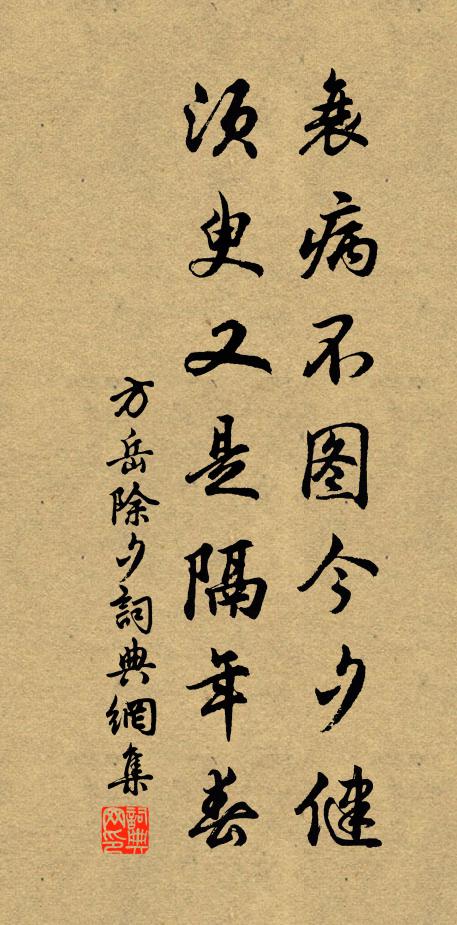 衰病不图今夕健
须臾又是隔年春
方岳除夕詞典網集
詞典网印